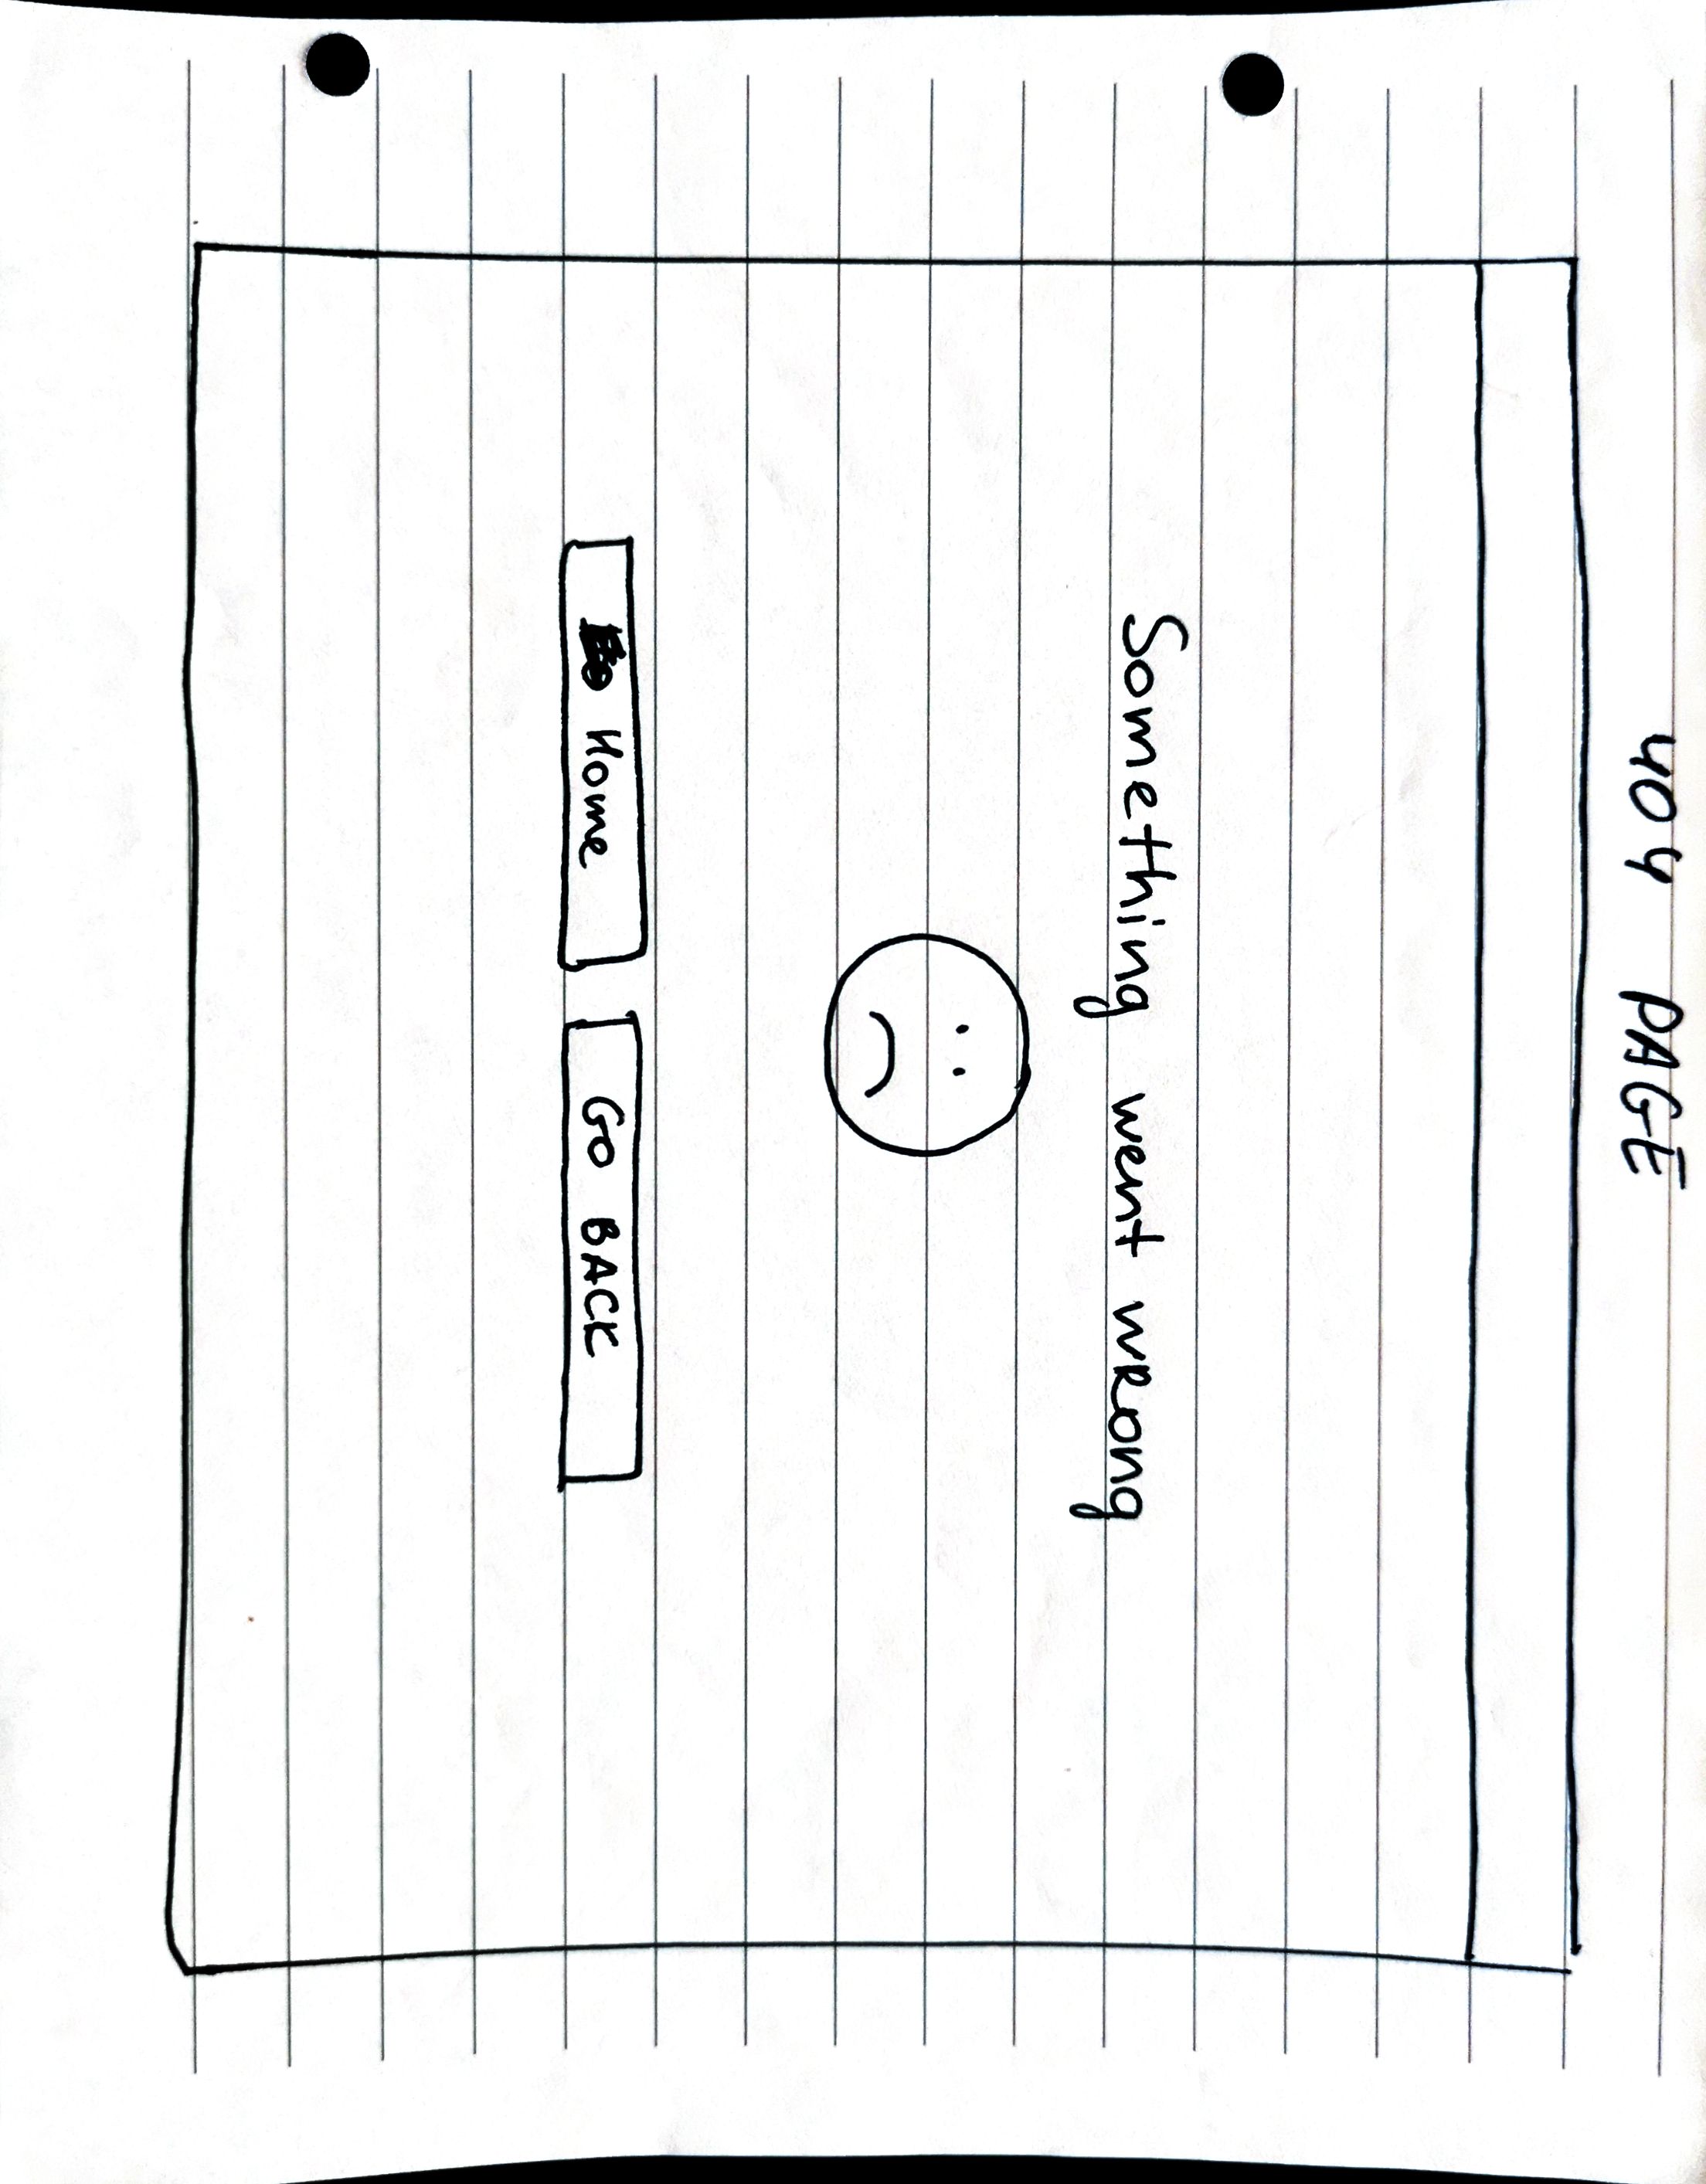 404 PAGE
Something went wrong
Home
GO BACK